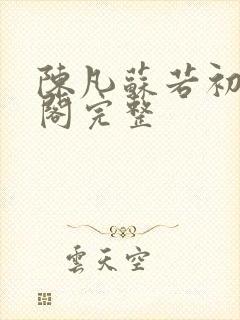 陳凡蘇若初
閣完整
雲天空